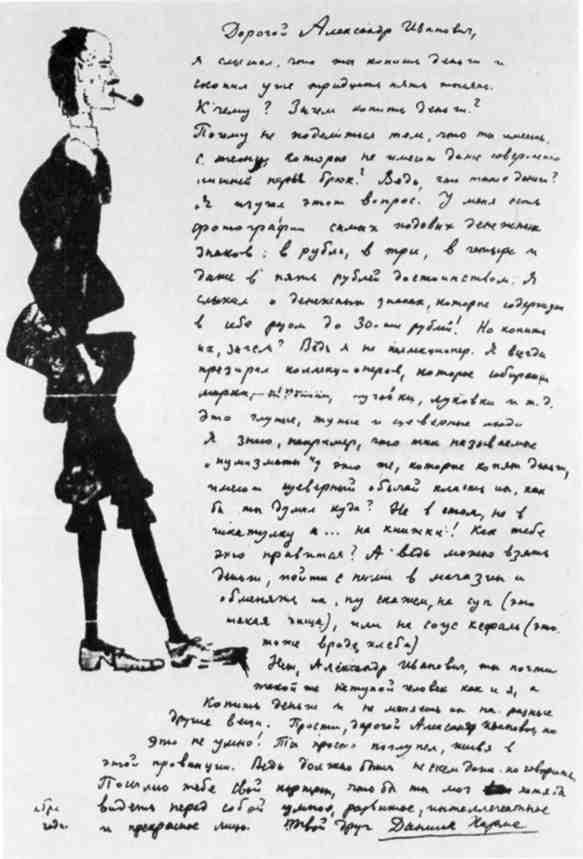 Дорогой Александр Иванович,
я слышал, что ты копишь деньги и
скопил уже тридцать пять тысяч.
К чему? Зачем копить деньги?
Почему не поделиться тем, что ты имеешь,
с теми, которые не имеют даже совершенно
лишней пары брюк? Ведь, что такое деньги?
Я изучал этот вопрос. У меня есть
фотографии самых ходовых денежных
знаков: в рубль, в три, в четыре и
даже в пять рублей достоинством. Я
слыхал о денежных знаках, которые содержат
в себе разом до 30-ти рублей! Но копить
их, зачем? Ведь я не коллекционер. Я всегда
презирал коллекционеров, которые собирают
марки, пуговки, луковки и т.д.
Это глупые, тупые и суеверные люди
Я знаю, например, что так называемые
„нумизматы“, это те, которые копят деньги,
имеют суеверный обычай класть их, как
бы ты думал куда? Не в стол, не в
шкатулку а... на книжки! Как тебе
это нравится? А ведь можно взять
деньги, пойти с ними в магазин и
обменять их, ну скажем, на суп (это
такая пища), или на соус кефаль (это
тоже вроде хлеба)
Нет, Александр Иванович, ты почти
такой же нетупой человек как и я, а
копишь деньги и не меняешь их на разные
другие вещи. Прости, дорогой Александр Иванович, но
это не умно! Ты просто поглупел, живя в
этой провинции. Ведь должно быть не с кем даже поговорить.
Посылаю тебе свой портрет, что бы ты мог хотя бы
видеть перед собой умное, развитое, интеллигентное
и прекрасное лицо. Твой друг Даниил Хармс